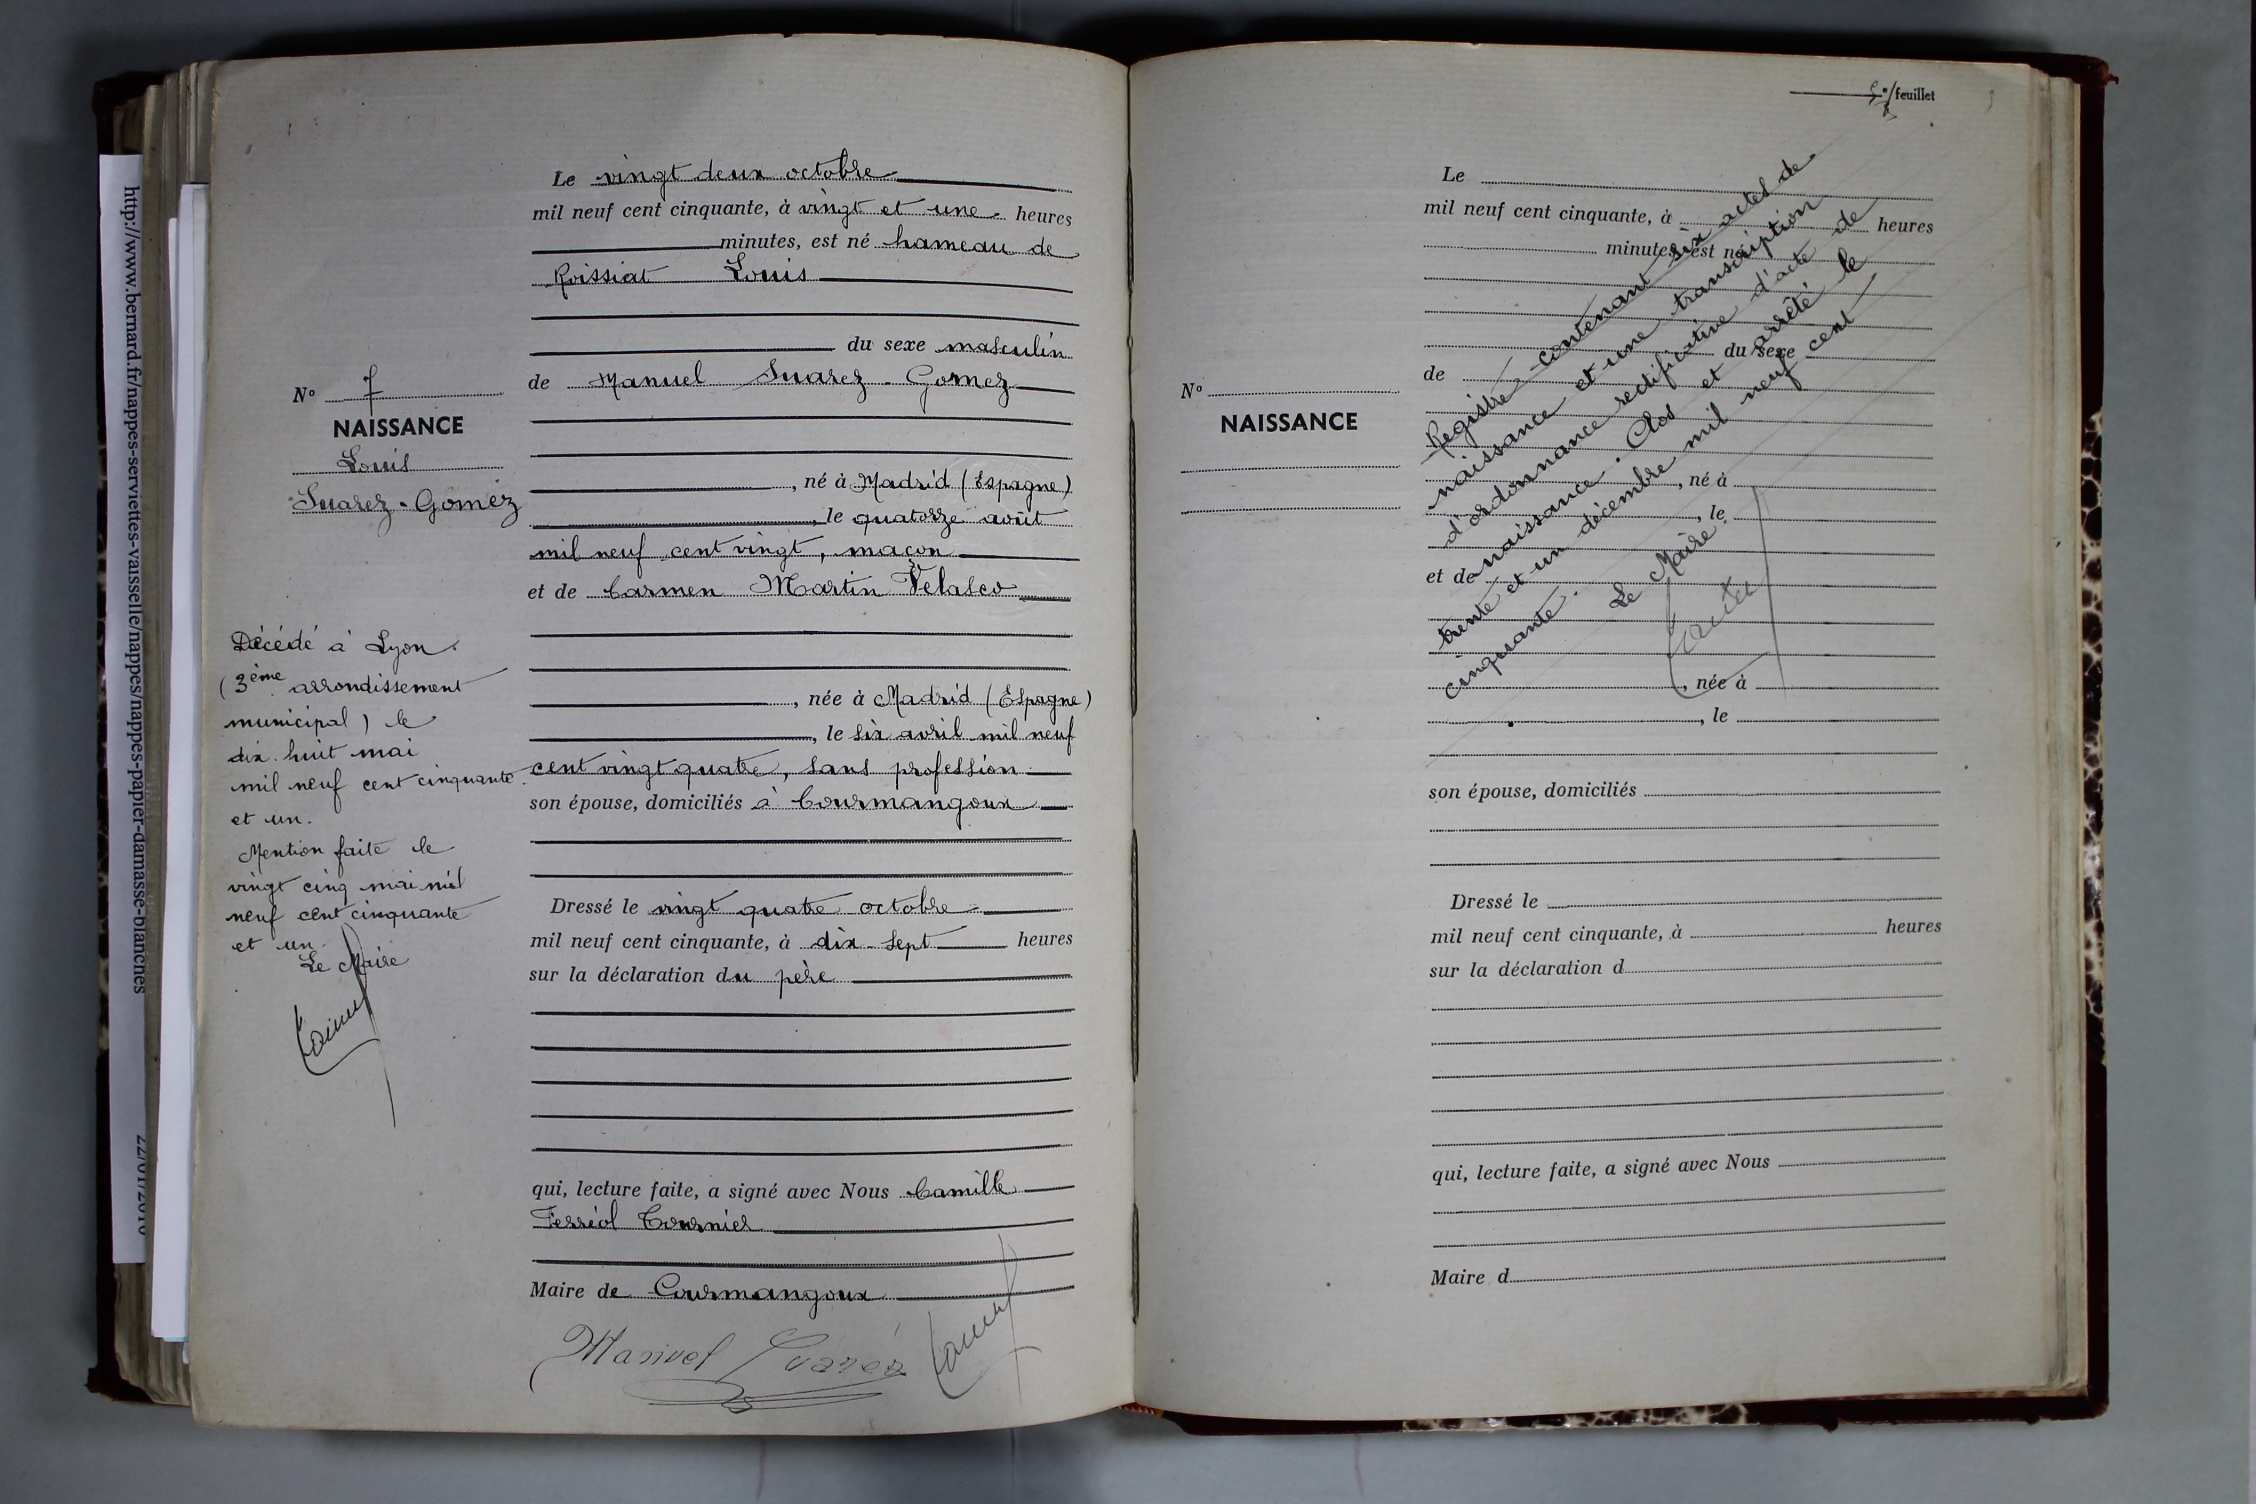 http://www.bernard.fr/nappes-serviettes-vaisselle/nappes/nappes-papier-damasse-blanches
22/01/2016
N° 7
NAISSANCE
Louis
Suarez-Gomez
Décédé à Lyon
(3ème arrondissement
municipal) le
dix huit mai
mil neuf cent cinquante
et un.
Mention faite le
vingt cinq mai mil
neuf cent cinquante
et un.
Le Maire
Le vingt deux octobre
mil neuf cent cinquante, à vingt et une heures
minutes, est né hameau de
Roissiat Louis
du sexe masculin
de Manuel Suarez-Gomez
, né à Madrid (Espagne)
, le quatorze août
mil neuf cent vingt, maçon
et de Carmen Martin Velasco
, née à Madrid (Espagne)
, le six avril mil neuf
cent vingt quatre, sans profession
son épouse, domiciliés à Courmangoux
Dressé le vingt quatre octobre
mil neuf cent cinquante, à dix-sept heures
sur la déclaration du père
qui, lecture faite, a signé avec Nous Camille
Ferréol Tournier
Maire de Courmangoux
Manuel Suarez
feuillet
Le
mil neuf cent cinquante, à heures
minutes, est né
du sexe
de
N°
NAISSANCE
, né à
, le
et de
, née à
, le
son épouse, domiciliés
Dressé le
mil neuf cent cinquante, à heures
sur la déclaration d
qui, lecture faite, a signé avec Nous
Maire d
Registre contenant six actes de
naissance et une transcription
d'ordonnance rectificative d'acte de
naissance. Clos et arrêté le
trente et un décembre mil neuf cent
cinquante.
Le Maire.